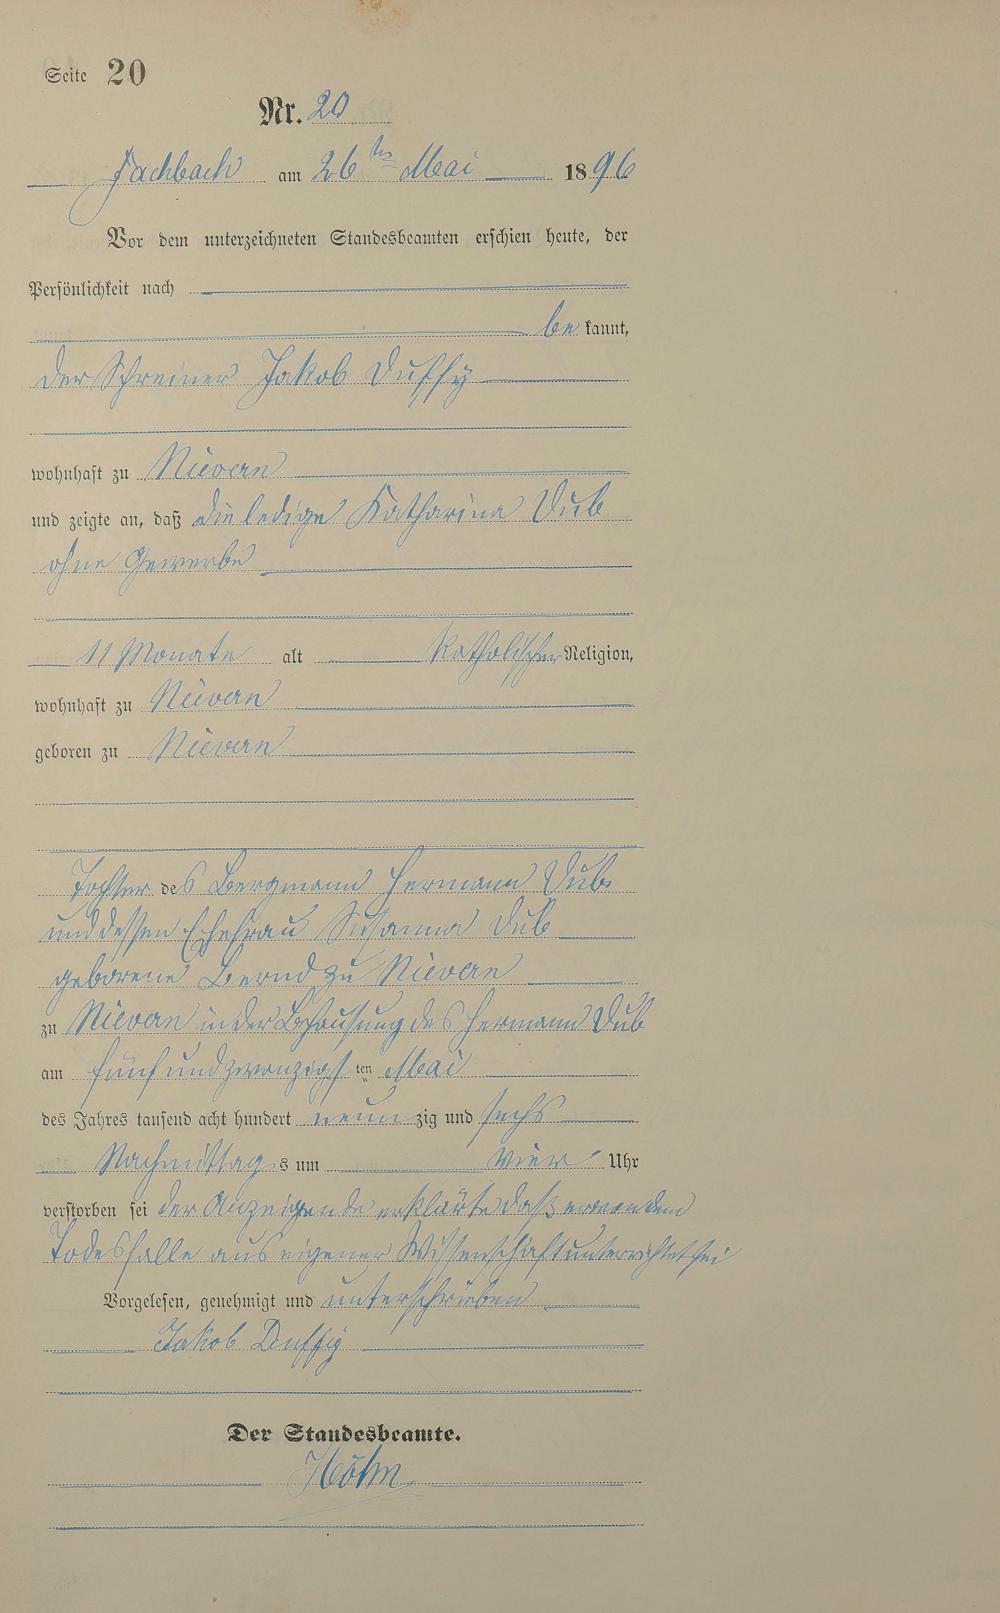 Seite 20
Nr. 20
Fachbach am 26ten Mai 1896
Vor dem unterzeichneten Standesbeamten erschien heute, der
Persönlichkeit nach
be kannt,
der Schreiner Jakob Duffy
wohnhaft zu Nievern
und zeigte an, daß die ledige Katharina Dub
ohne Gewerbe
11 Monate alt katholischer Religion,
wohnhaft zu Nievern
geboren zu Nievern
Tochter des Bergmann Hermann Dub
und dessen Ehefrau Susanna Dub
geborene Bernd zu Nievern
zu Nievern in der Behausung des Hermann Dub
am fünfundzwanzigsten Mai
des Jahres tausend acht hundert neunzig und sechs
Nachmittags um vier Uhr
verstorben sei der Anzeigende erklärte daß er von dem
Todesfalle aus eigener Wissenschaft unterrichtet sei
Vorgelesen, genehmigt und unterschrieben
Jakob Duffy
Der Standesbeamte.